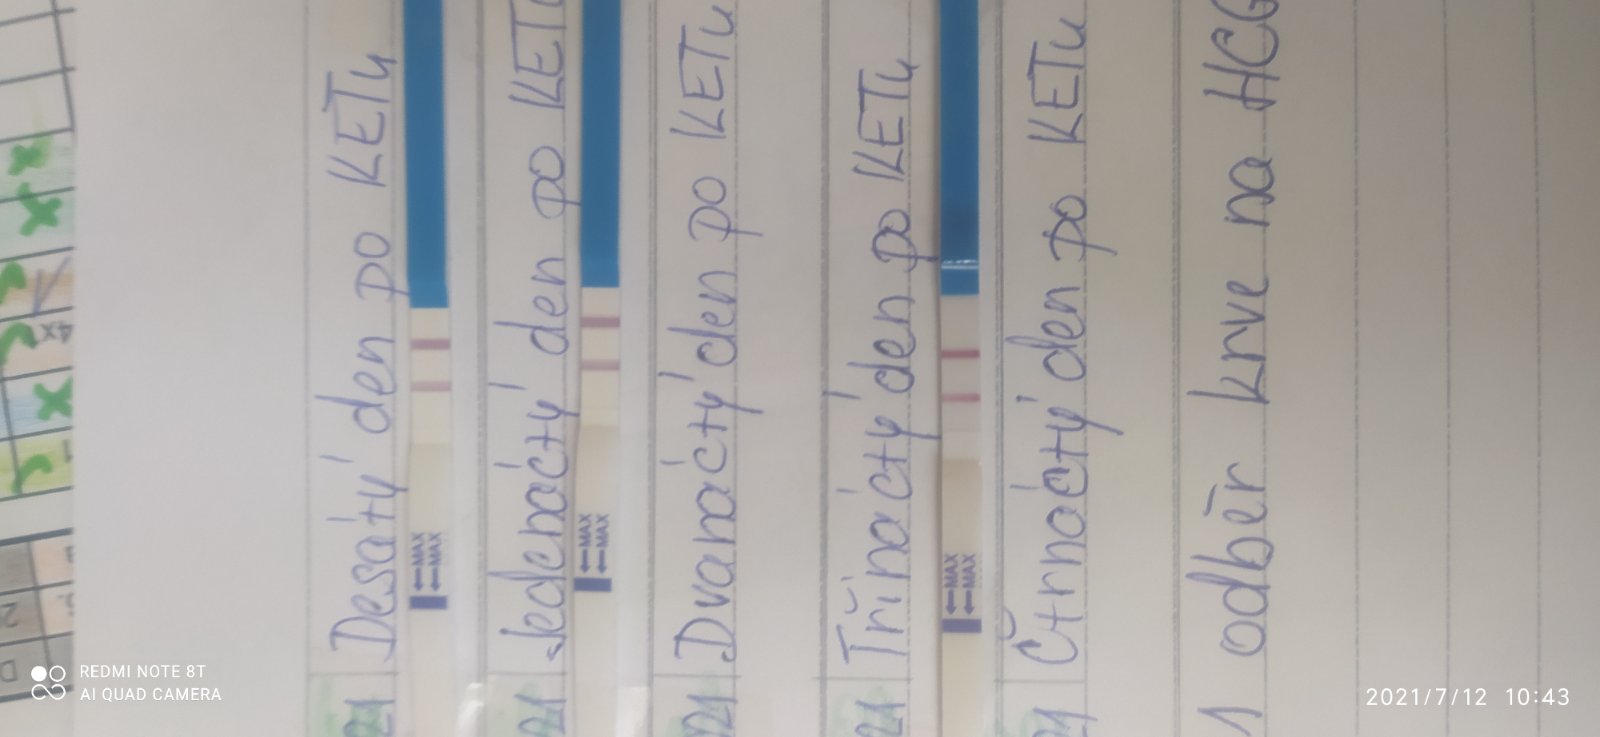 21 Desátý den po KETu
←MAX
←MAX
21 Jedenáctý den po KETu
←MAX
←MAX
21 Dvanáctý den po KETu
21 Třináctý den po KETu
←MAX
←MAX
21 Čtrnáctý den po KETu
1 odběr krve na HCG
4x
REDMI NOTE 8T
AI QUAD CAMERA
2021/7/12 10:43